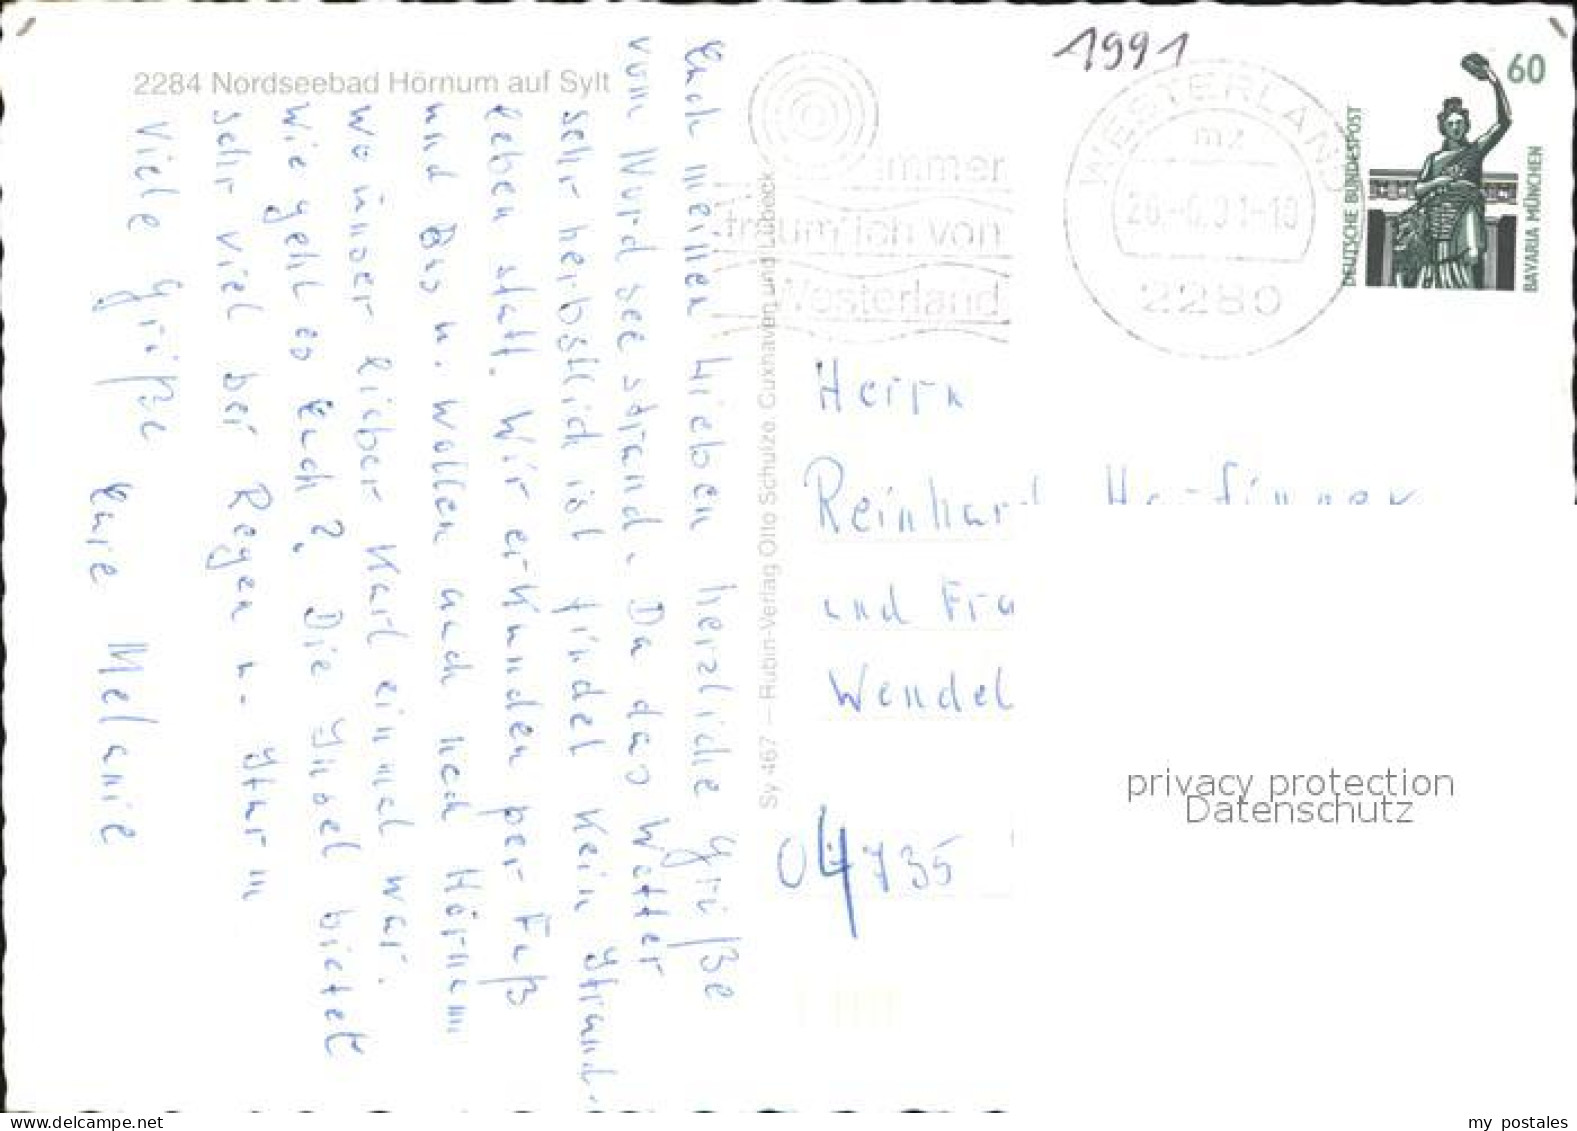 2284 Nordseebad Hörnum auf Sylt
Euch meinen Lieben herzliche Grüße
vom Nordseestrand. Da das Wetter
sehr herbstlich ist findet kein Strand-
leben statt. Wir erkunden per Fuß
und Bus u. wollen auch nach Hörnum
wo unser lieber Karl einmal war.
Wie geht es Euch? Die Insel bietet
sehr viel bei Regen u. Sturm
Viele Grüße
Eure Melanie
Sy 467 – Rubin-Verlag Otto Schulze, Cuxhaven und Lübeck
immer
träum' ich von
Westerland
1991
WESTERLAND
mz
26.-6.91-18
2280
60
DEUTSCHE BUNDESPOST
BAVARIA MÜNCHEN
Herrn
Reinhard
und Fra
Wendel
04735
privacy protection
Datenschutz
my postales
www.delcampe.net